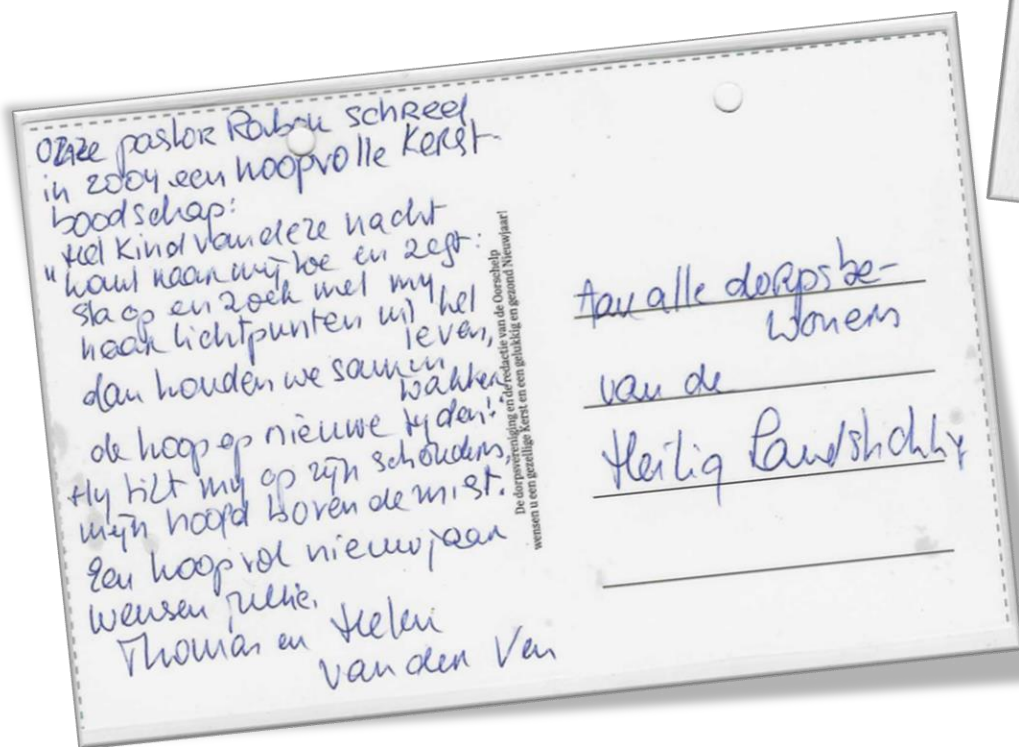 Onze pastor Rabou schreef
in 2004 een hoopvolle Kerst-
boodschap:
"Het Kind van deze nacht
komt naar mij toe en zegt:
sta op en zoek met my
naar lichtpunten uit het
leven,
dan houden we samen
wakker
de hoop op nieuwe tyden!"
Hy tilt my op zijn schouders,
mijn hoofd boven de mist.
Een hoopvol nieuwjaar
wensen jullie.
Thomas en Helen
van den Ven
De dorpsvereniging en de redactie van de Oorschelp
wensen u een gezellige Kerst en een gelukkig en gezond Nieuwjaar!
Aan alle dorpsbe-
woners
van de
Heilig Landstichting